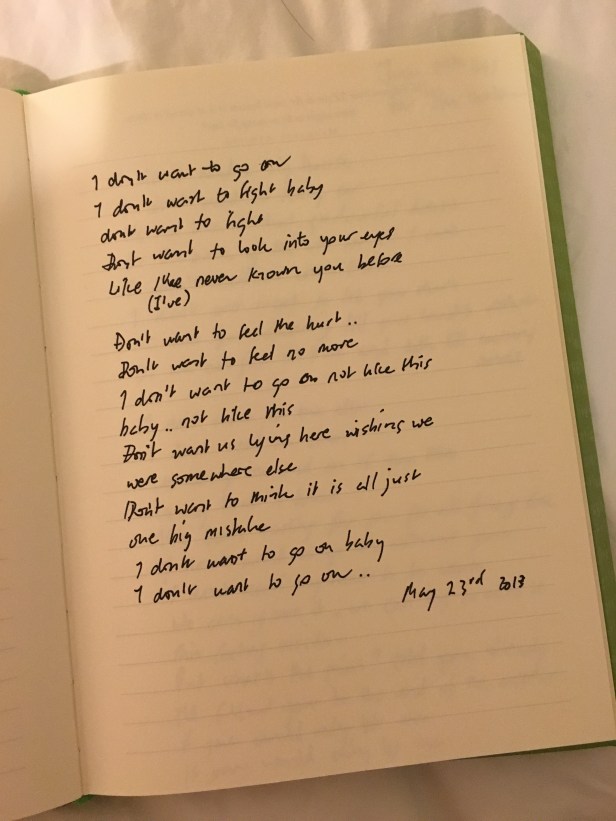 I don't want to go on
I don't want to fight baby
dont want to fight
Don't want to look into your eyes
Like I've never known you before
(I've)
Don't want to feel the hurt..
Don't want to feel no more
I don't want to go on not like this
baby.. not like this
Don't want us lying here wishing we
were somewhere else
Don't want to think it is all just
one big mistake
I don't want to go on baby
I don't want to go on..
May 23rd 2013